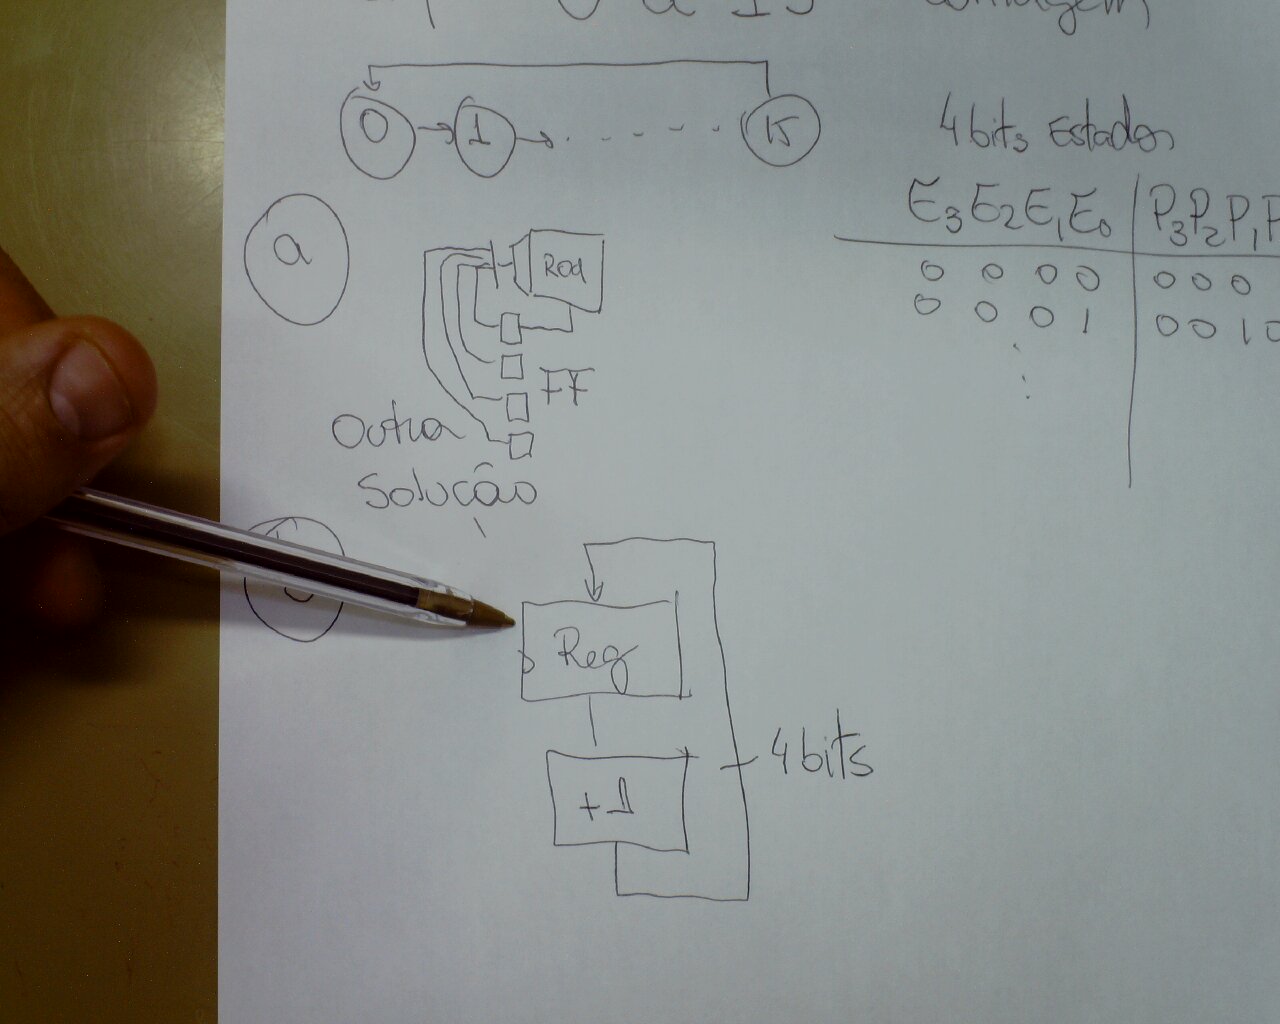 0 a 15 contagem
0 1 15
4 bits Estados
E3 E2 E1 E0 P3 P2 P1 P
0 0 0 0 0 0 0
0 0 0 1 0 0 1 0
a
FF
Outra
Solução
Reg
+1
4 bits